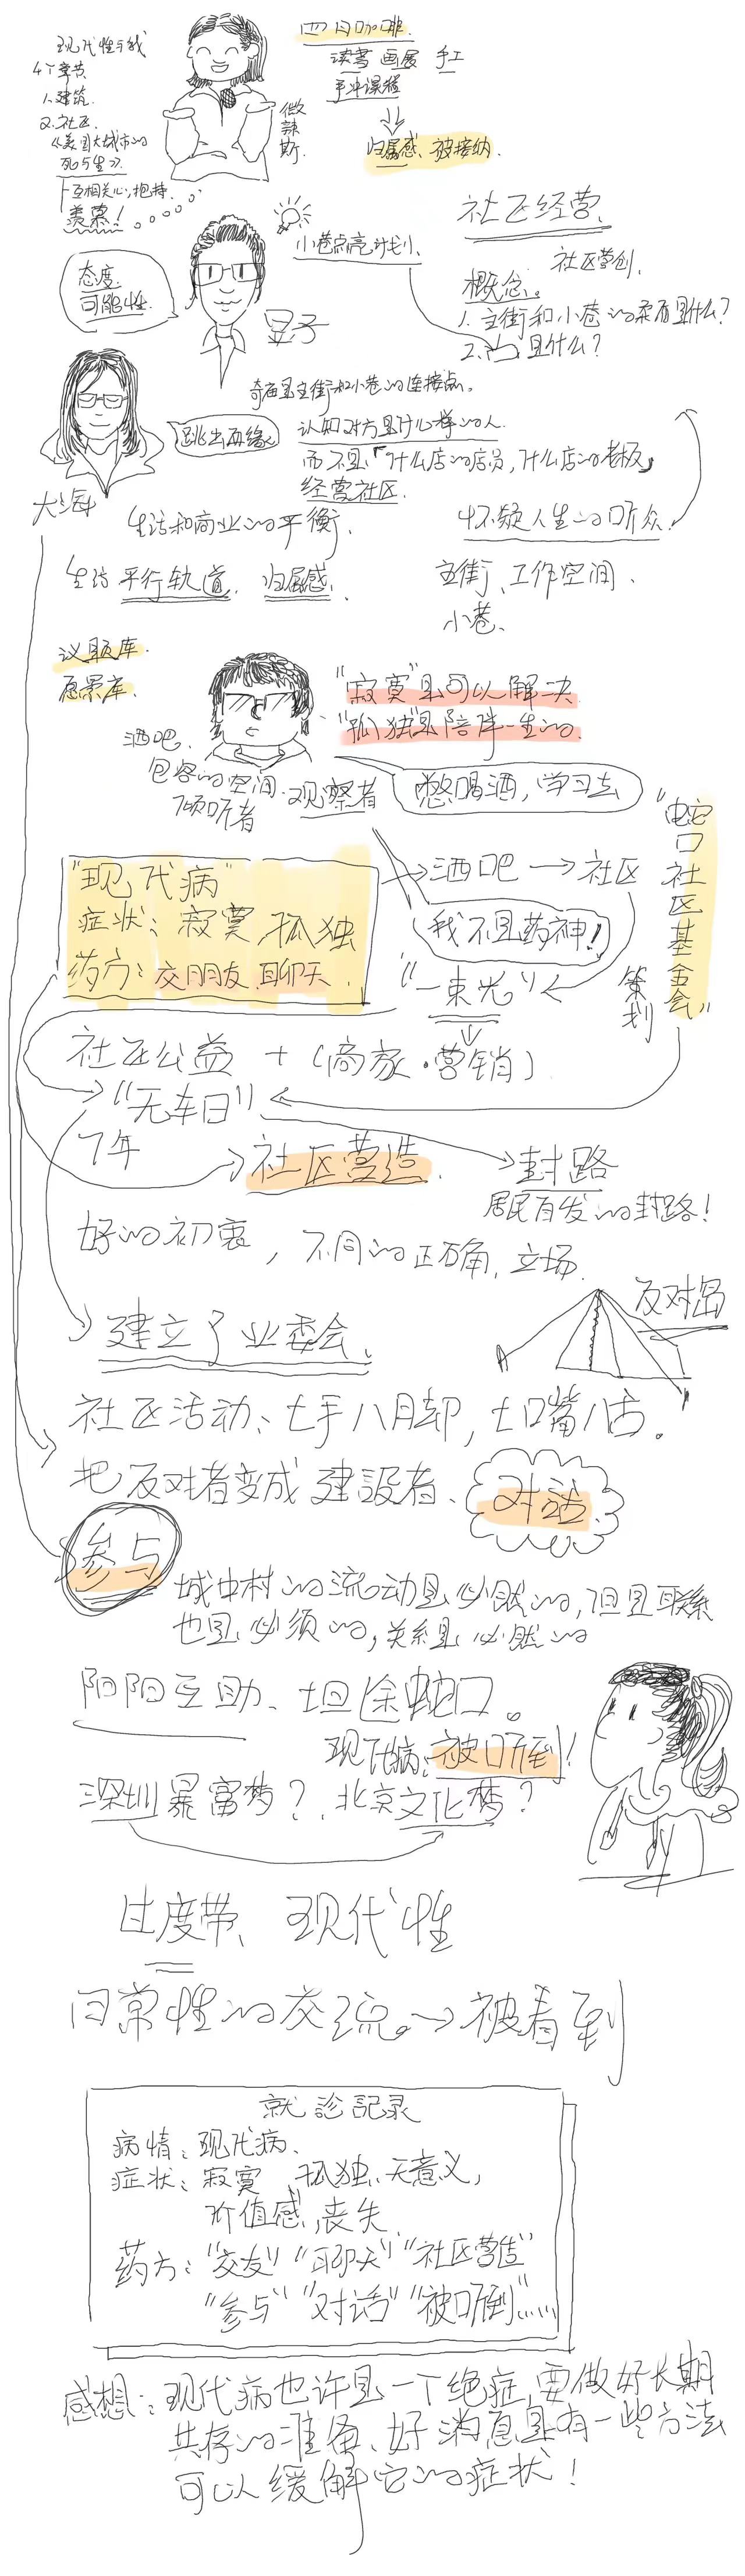 现代性与我
4个章节
1、建筑.
2、社区.
《美国大城市的
死与生》.
互相关心,抱持.
羡慕!
微辣斯.
四月咖啡.
读书 画展 手工
手冲课程
归属感、被接纳.
社区经营.
社区营创.
小巷点亮计划.
概念.
1. 主街和小巷的矛盾是什么?
2. 是什么?
态度.
可能性.
昱子
奇亩是主街和小巷的连接点.
跳出再缘
认知对方是什么样的人.
而不是「什么店的店员,什么店的老板」
经营社区.
大海
生活和商业的平衡.
怀疑人生的听众.
生活 平行轨道. 归属感.
主街、工作空间、
小巷、
议题库.
愿景库.
"寂寞"是可以解决
"孤独"是陪伴一生的.
酒吧.
包容的空间.
倾听者 观察者
憋喝酒,学习去
"蛇口社区基金会"
策划
"现代病"
症状: 寂寞,孤独
药方: 交朋友.聊天.
酒吧 → 社区
我不是药神!
"一束光"
社区公益 + (商家·营销)
"无车日"
7年
社区营造.
封路
居民自发的封路!
好的初衷, 不同的正确,立场.
反对岛
建立了业委会.
社区活动、七手八脚,七嘴八舌。
把反对者变成建設者、
对话
参与
城中村的流动是必然的,但是联系
也是必须的,关系是必然的
阳阳互助、坦途蛇口。
现代病:被听到!
深圳暴富梦?、北京文化梦?
过度带、现代性
日常性的交流。→被看到
就診記录
病情: 现代病、
症状: 寂寞、孤独、无意义,
价值感,丧失.
药方: "交友" "聊天" "社区营造"
"参与" "对话" "被听到"......
感想: 现代病也许是一个绝症,要做好长期
共存的准备、好消息是有一些方法
可以缓解它的症状!